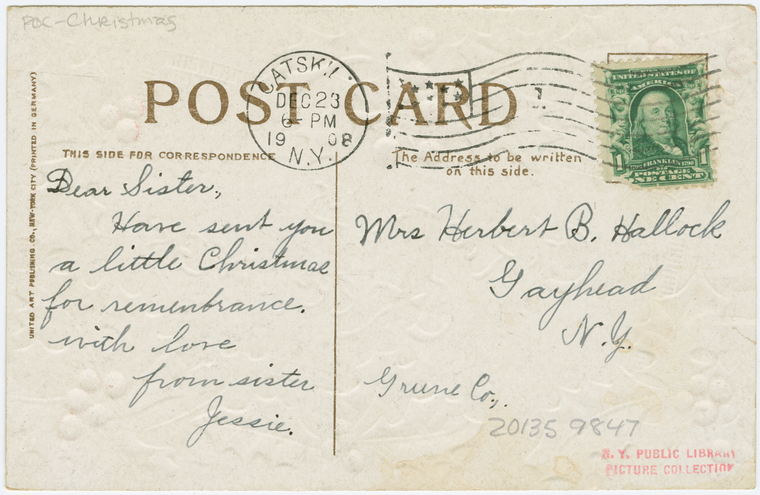 POC-Christmas
POST CARD
CATSKILL
DEC 23
6-PM
1908
N.Y.
UNITED STATES OF
AMERICA
1 FRANKLIN 1
POSTAGE
ONE CENT
THIS SIDE FOR CORRESPONDENCE
The Address to be written
on this side.
UNITED ART PUBLISHING CO., NEW-YORK CITY (PRINTED IN GERMANY)
Dear Sister.,
Have sent you
a little Christmas
for remembrance.
with love
from sister
Jessie.
Mrs Herbert B. Hallock
Gayhead
N.Y.
Greene Co,.
20135 9847
N. Y. PUBLIC LIBRARY
PICTURE COLLECTION